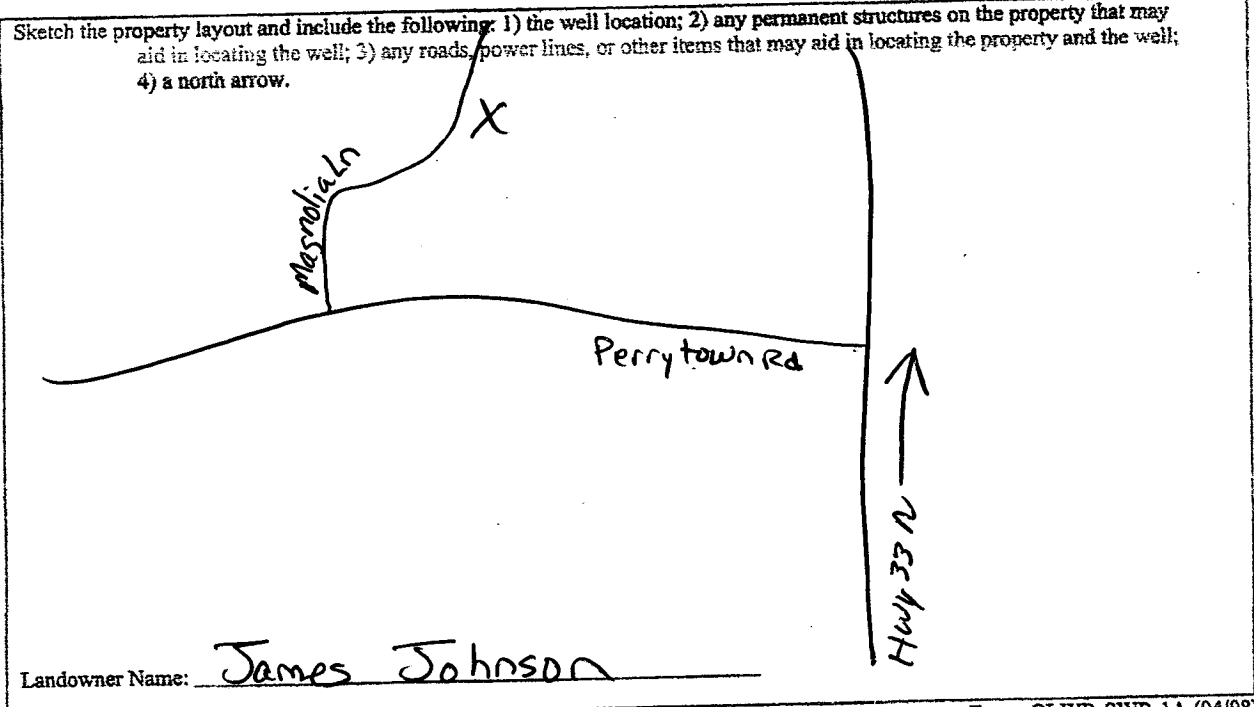 Sketch the property layout and include the following: 1) the well location; 2) any permanent structures on the property that may
aid in locating the well; 3) any roads, power lines, or other items that may aid in locating the property and the well;
4) a north arrow.
X
Magnolia Ln
Perrytown Rd
Hwy 33 N
Landowner Name: James Johnson